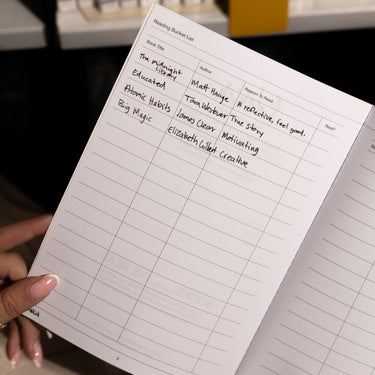 Reading Bucket List
Book Title Author Reason To Read Read?
The Midnight Library Matt Haige A reflective, feel good.
Educated Tara Westover True story
Atomic Habits James Clear Motivating
Big Magic Elizabeth Gilbert Creative
2